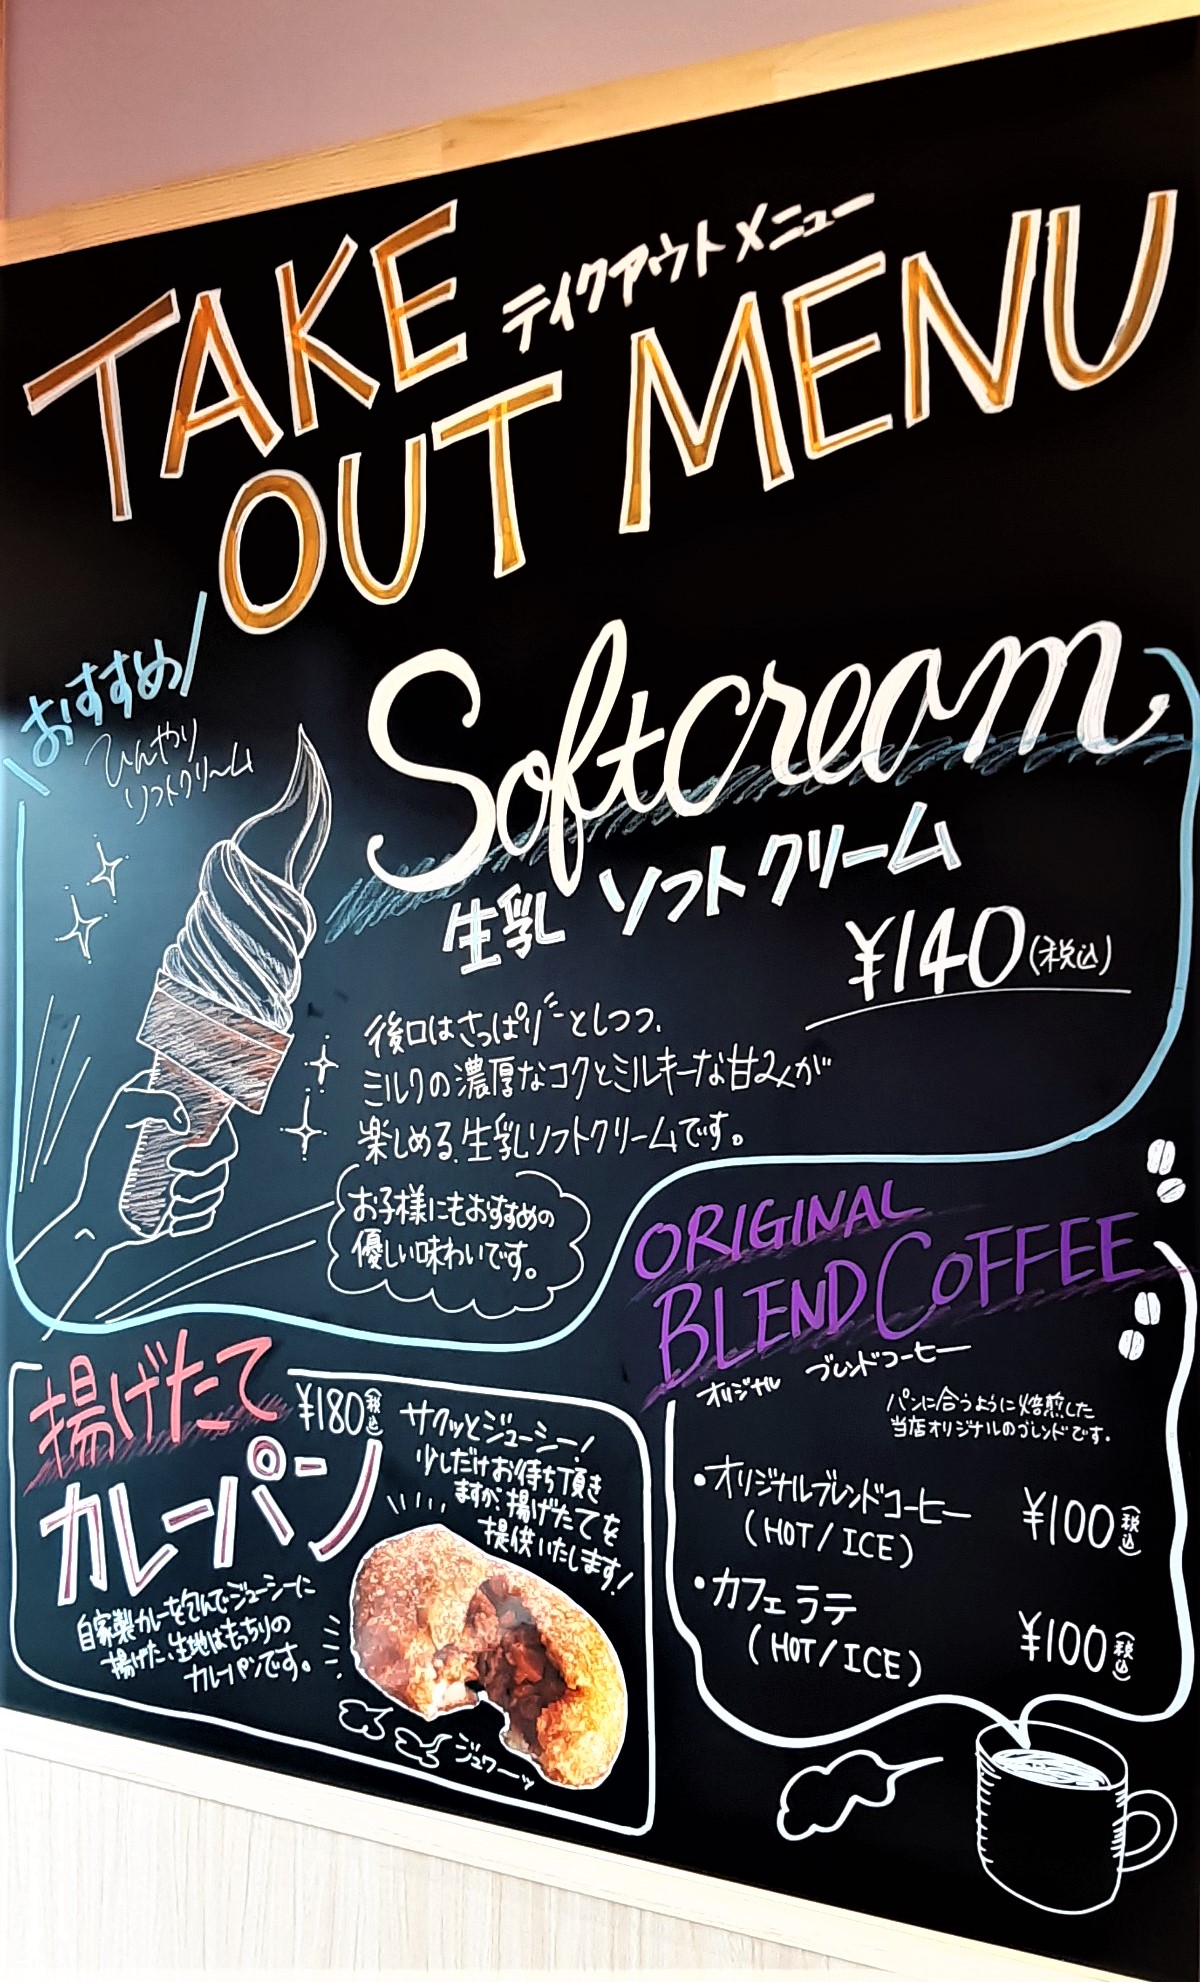 TAKE
ティクアウトメニュー
OUT MENU
おすすめ
ひんやり
ソフトクリーム
Softcream
生乳 ソフトクリーム
¥140(税込)
後口はさっぱりとしつつ、
ミルクの濃厚なコクとミルキーな甘みが
楽しめる、生乳ソフトクリームです。
お子様にもおすすめの
優しい味わいです。
揚げたて
¥180(税込)
カレーパン
サクッとジューシー!
少しだけお待ち頂き
ますが、揚げたてを
提供いたします!
自家製カレーを包んでジューシーに
揚げた、生地はもっちりの
カレーパンです。
ジュワーッ
ORIGINAL
BLEND COFFEE
オリジナル ブレンドコーヒー
パンに合うように焙煎した
当店オリジナルのブレンドです。
・オリジナルブレンドコーヒー ¥100(税込)
(HOT/ICE)
・カフェラテ
(HOT/ICE) ¥100(税込)